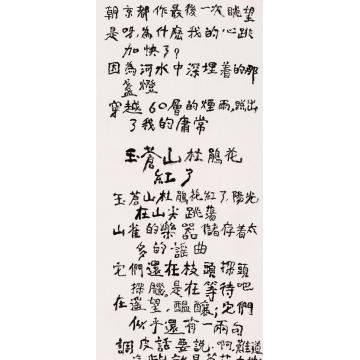 朝京都作最後一次眺望
是呀,為什麼我的心跳
加快了?
因為河水中深埋着的那
盞燈
穿越60層的煙雨,跳出
了我的庸常
玉蒼山杜鵑花
紅了
玉蒼山杜鵑花紅了,陽光
在山尖跳蕩
山雀的樂器儲存着太
多的謡曲
它們還在枝頭探頭
探腦。是在等待吧
在遥望、醖釀;它們
似乎還有一兩句
調皮話要說,啊,難道